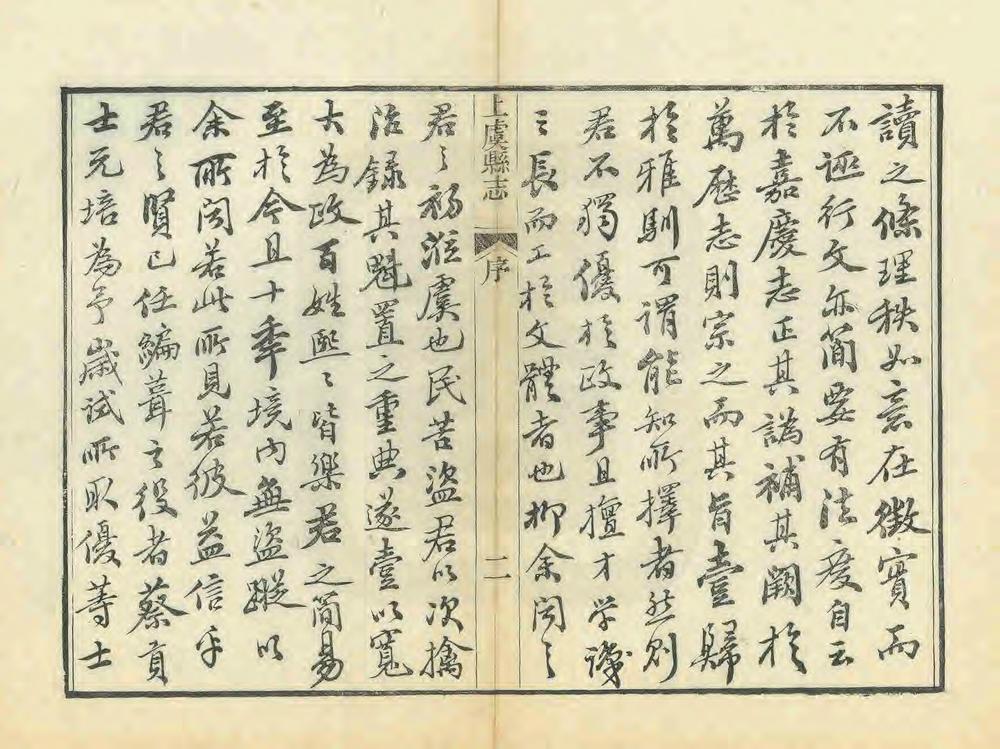 讀之條理秩如意在徵實而
不誣行文亦簡要有法度自云
於嘉慶志正其譌補其闕於
萬歷志則宗之而其旨壹歸
於雅馴可謂能知所擇者然則
君不獨優於政事且擅才學識
三長而工於文體者也抑余聞之
上虞縣志
序
二
君之初涖虞也民苦盜君以次擒
治錄其魁置之重典遂壹以寬
大為政百姓熙〻皆樂君之簡易
至於今且十年境內無盜蹤以
余所聞若此所見若彼益信乎
君之賢已任編葺之役者蔡貢
士元培為予歲試所取優等士